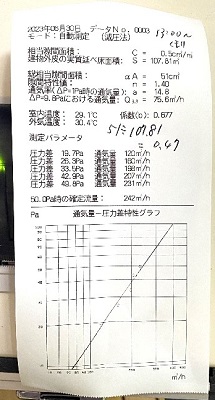 2023年06月30日 データNo. 0003
モード：自動測定 （減圧法）
13:00
相当隙間面積： C = 0.5c㎡/㎡
建物外皮の実質延べ床面積： S = 107.81㎡
総相当隙間面積： αA = 51c㎡
隙間特性値： n = 1.40
通気率（ΔP=1Pa時の通気量）： a = 14.8
ΔP=9.8Paにおける通気量： Q9.8 = 75.6㎥/h
室内温度： 29.1℃ 係数(α)： 0.677
外気温度： 30.4℃
51÷107.81
= 0.47
測定パラメータ
圧力差 19.7Pa 通気量 120㎥/h
圧力差 26.9Pa 通気量 160㎥/h
圧力差 33.5Pa 通気量 198㎥/h
圧力差 42.9Pa 通気量 207㎥/h
圧力差 49.8Pa 通気量 231㎥/h
50.0Pa時の確定流量： 242㎥/h
Pa 通気量－圧力差特性グラフ
㎥/h